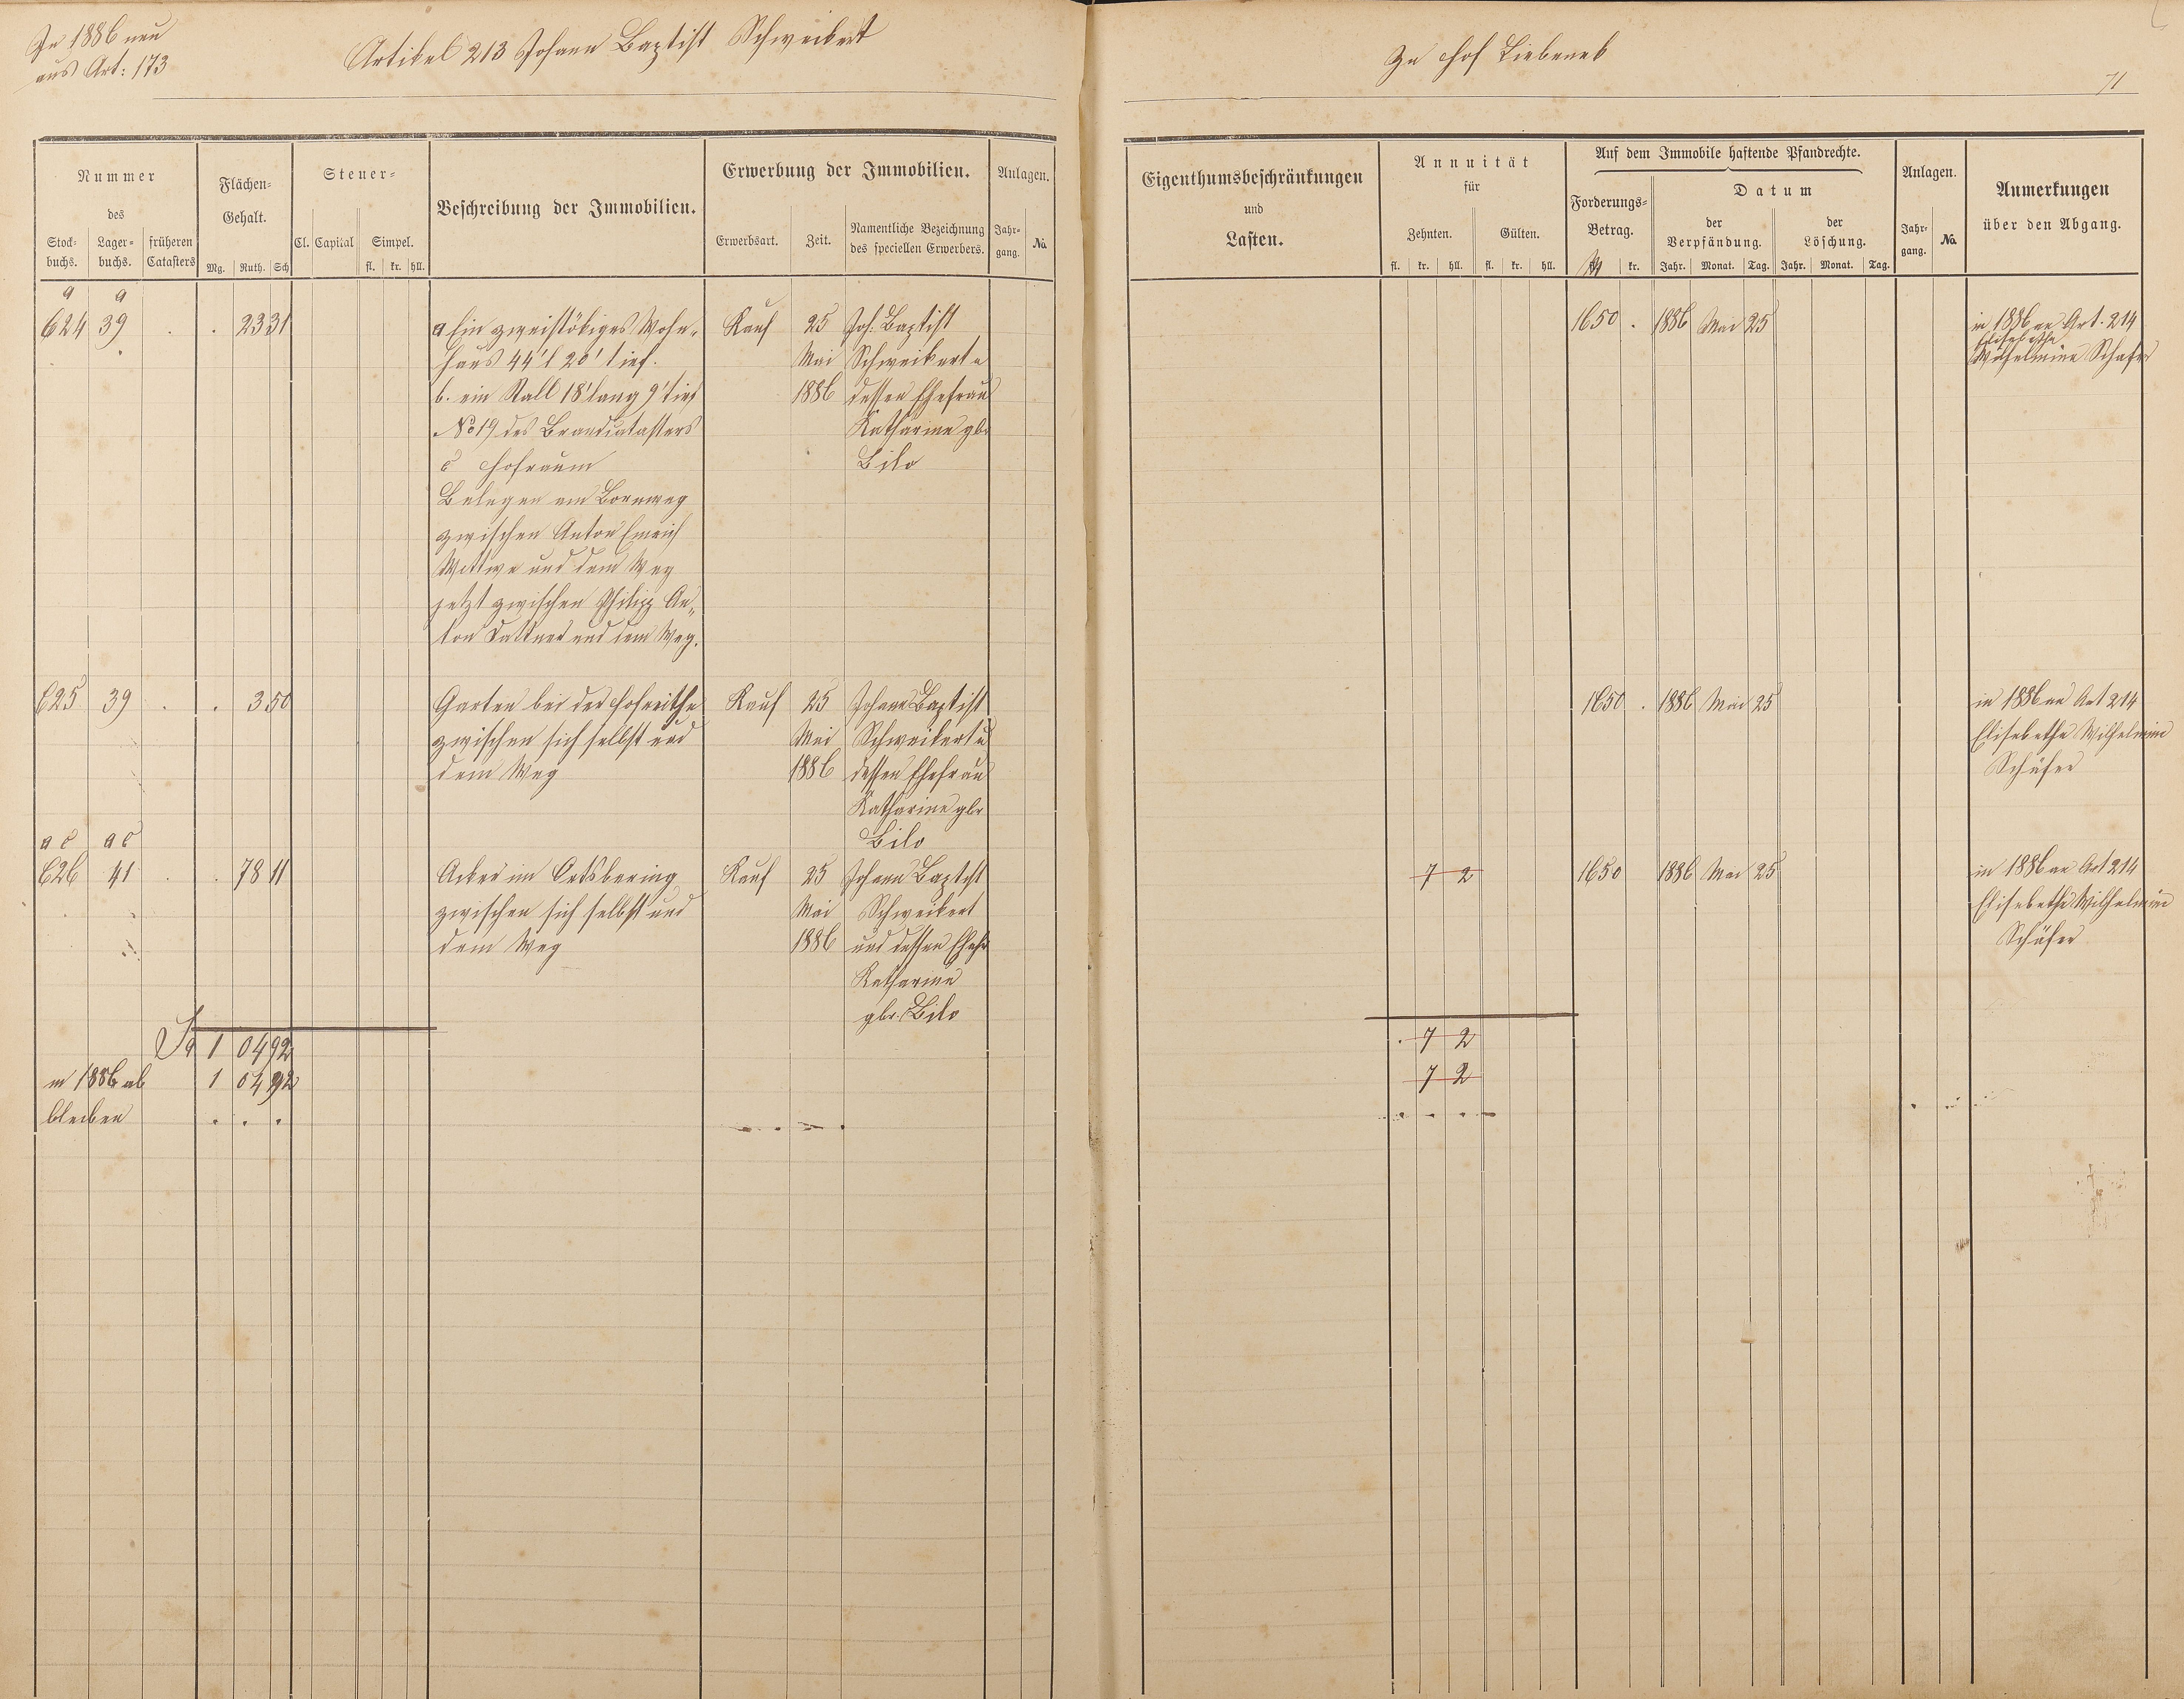 In 1886 neu
aus Art: 173
Artikel 213 Johann Baptist Schweikert
Zu Hof Liebeneck
71
Nummer
des
Stock-
buchs.
Lager-
buchs.
früheren
Catasters
Flächen-
Gehalt.
Mg. Ruth. Sch
Steuer-
Cl. Capital Simpel.
fl. kr. hll.
Beschreibung der Immobilien.
Erwerbung der Immobilien.
Erwerbsart. Zeit.
Namentliche Bezeichnung
des speciellen Erwerbers.
Anlagen.
Jahr-
gang.
No.
Eigenthumsbeschränkungen
und
Lasten.
Annuität
für
Zehnten. Gülten.
fl. kr. hll. fl. kr. hll.
Auf dem Immobile haftende Pfandrechte.
Forderungs-
Betrag.
M kr.
Datum
der
Verpfändung.
der
Löschung.
Jahr. Monat. Tag. Jahr. Monat. Tag.
Anlagen.
Jahr-
gang.
No.
Anmerkungen
über den Abgang.
a a
624 39 . . 23 31
a Ein zweistökiges Wohn-
haus 44' l 26' tief.
b. ein Stall 18' lang 9' tief
No 19 des Brandcatasters
c Hofraum
Belegen am Bornweg
zwischen Anton Emrich
Wittwe und dem Weg
jetzt zwischen Philipp An-
ton Dattner und dem Weg.
Kauf 25
Mai
1886
Joh. Baptist
Schweikert u
dessen Ehefrau
Katharine gbr
Bilo
1650 . 1886 Mai 25
in 1886 an Art. 214
Elisabethe
Wilhelmine Schäfer
625 39 . . 3 50
Garten bei der Hofreithe
zwischen sich selbst und
dem Weg
Kauf 25
Mai
1886
Johann Baptist
Schweikert u
dessen Ehefrau
Katharine gbr
Bilo
1650 . 1886 Mai 25
in 1886 an Art 214
Elisabethe Wilhelmine
Schäfer
a c a c
626 41 . . 78 11
Acker im Ortsbering
zwischen sich selbst und
dem Weg
Kauf 25
Mai
1886
Johann Baptist
Schweikert
und dessen Ehefr
Katharine
gbr. Bilo
7 2
1650 1886 Mai 25
in 1886 an Art 214
Elisabethe Wilhelmine
Schäfer
Sa 1 04 92
in 1886 ab 1 04 92
bleiben . . .
. 7 2
7 2
. . . .